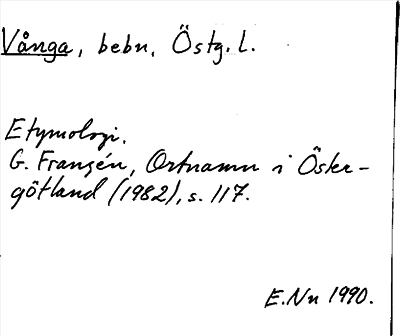 Vånga, bebn, Östg. l.
Etymologi.
G. Franzén, Ortnamn i Öster-
götland (1982), s. 117.
E.Nn 1990.